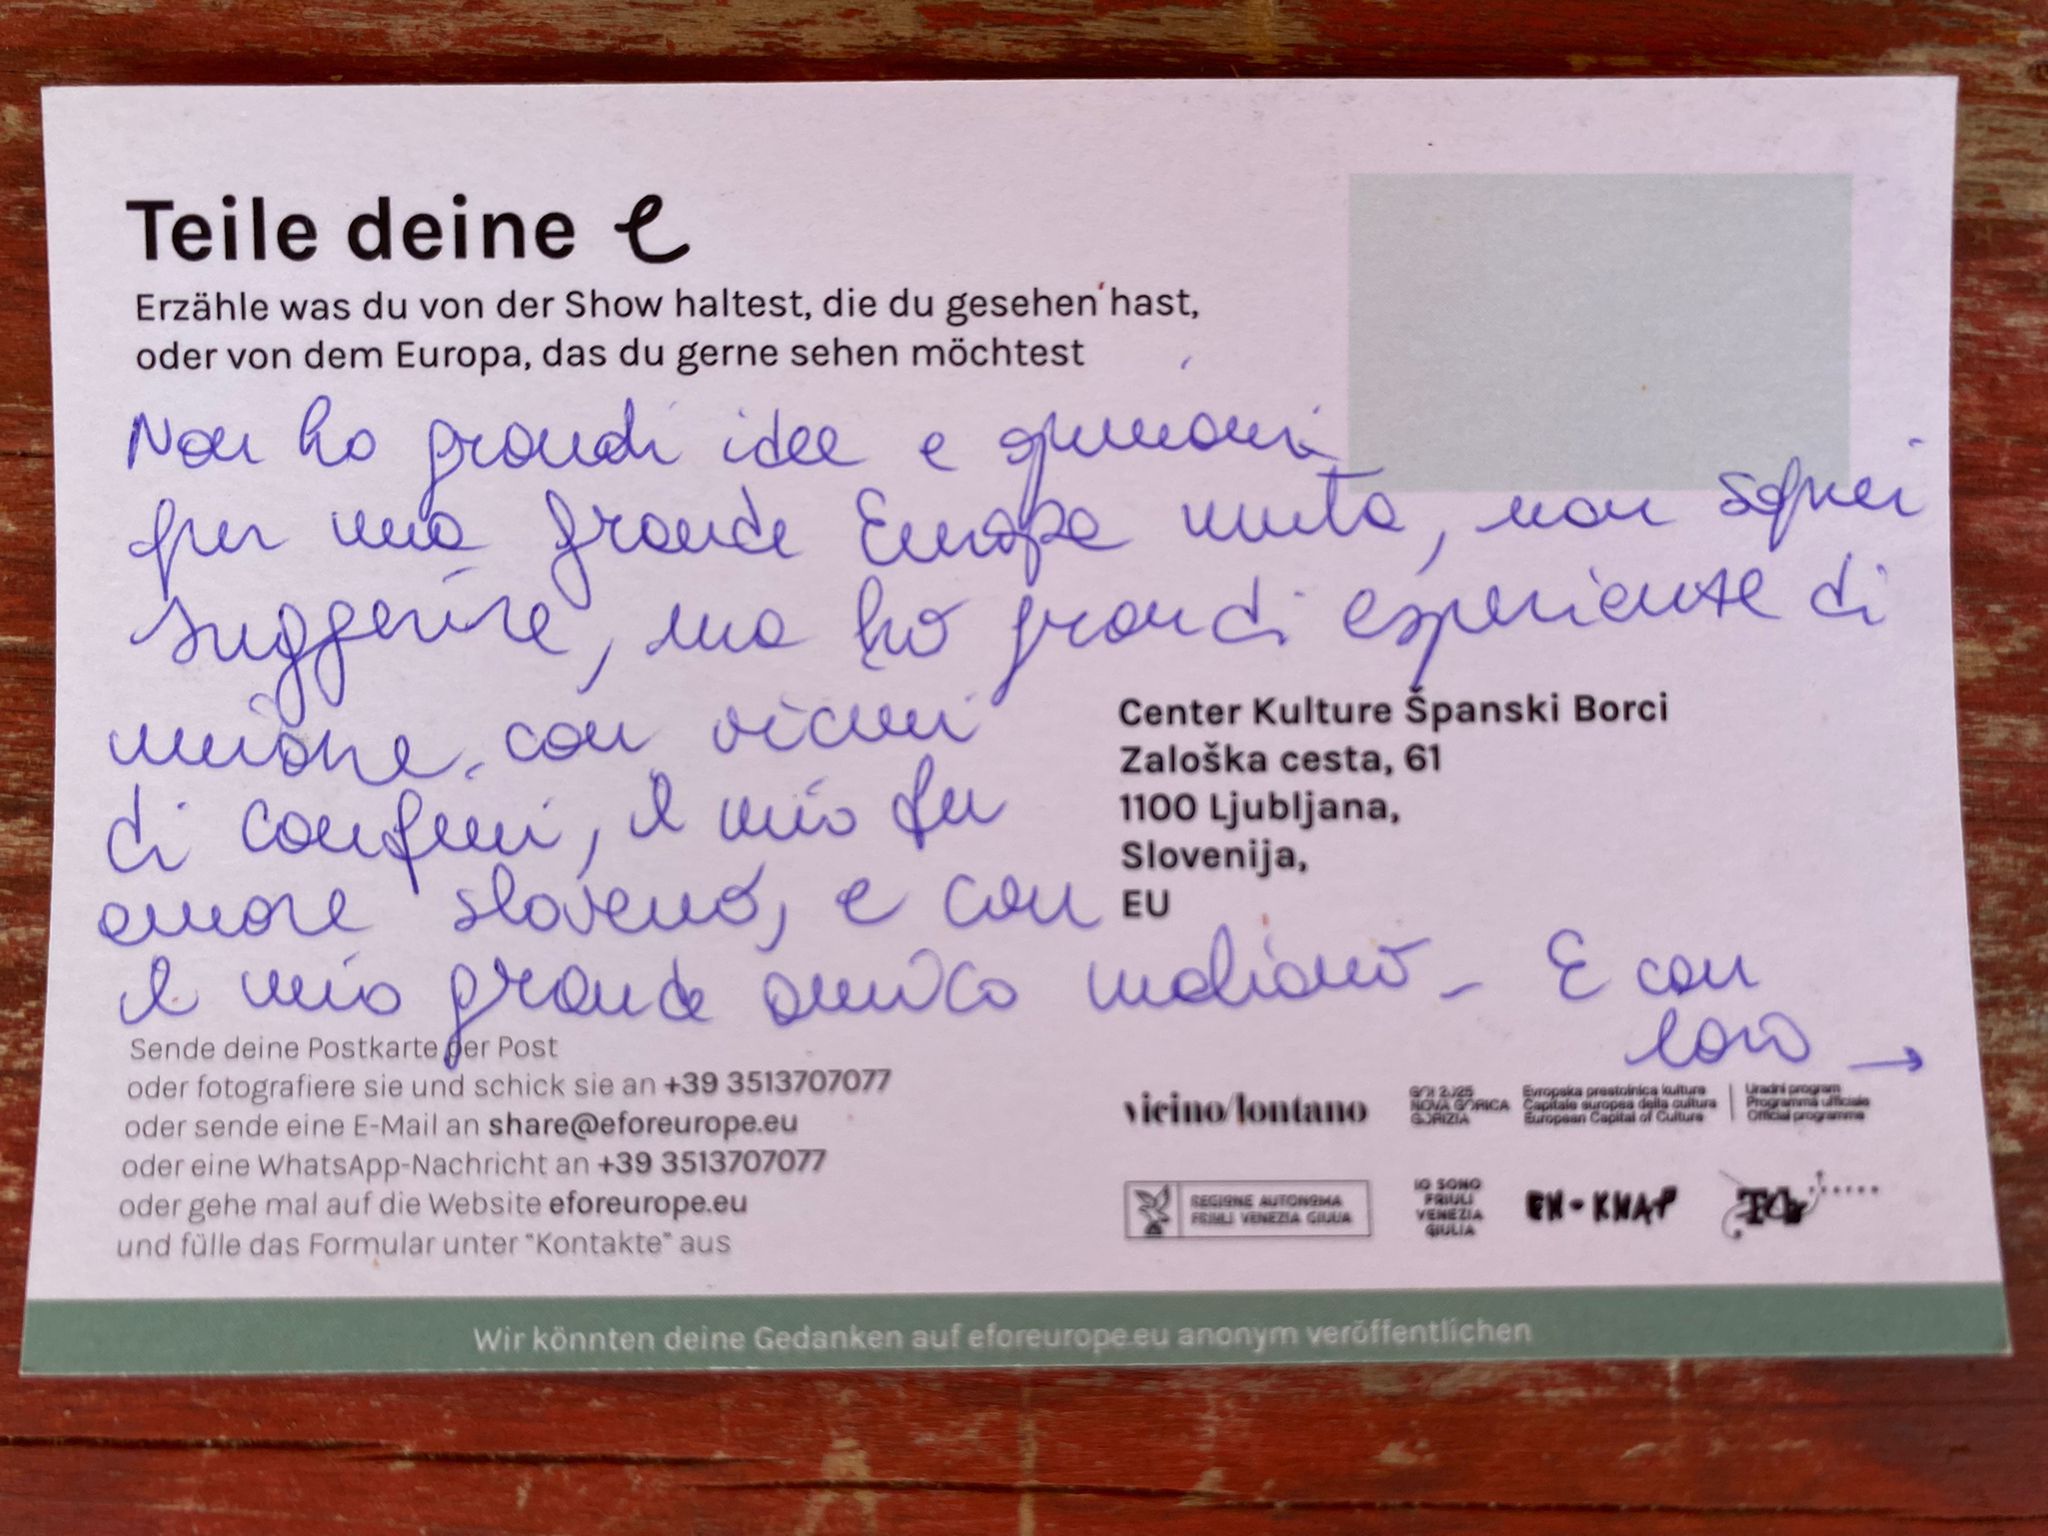 Teile deine e
Erzähle was du von der Show haltest, die du gesehen hast,
oder von dem Europa, das du gerne sehen möchtest
Non ho grandi idee e opinioni
per una grande Europa unita, non saprei
suggerire, ma ho grandi esperienze di
unione. con vicini
di confini, il mio fu
amore sloveno, e con
il mio grande amico maliano - E con
loro →
Center Kulture Španski Borci
Zaloška cesta, 61
1100 Ljubljana,
Slovenija,
EU
Sende deine Postkarte per Post
oder fotografiere sie und schick sie an +39 3513707077
oder sende eine E-Mail an share@eforeurope.eu
oder eine WhatsApp-Nachricht an +39 3513707077
oder gehe mal auf die Website eforeurope.eu
und fülle das Formular unter "Kontakte" aus
vicino/lontano
GO! 2025
NOVA GORICA
GORIZIA
Evropska prestolnica kulture
Capitale europea della cultura
European Capital of Culture
Uradni program
Programma ufficiale
Official programme
REGIONE AUTONOMA
FRIULI VENEZIA GIULIA
IO SONO
FRIULI
VENEZIA
GIULIA
EN-KNAP
Wir könnten deine Gedanken auf eforeurope.eu anonym veröffentlichen